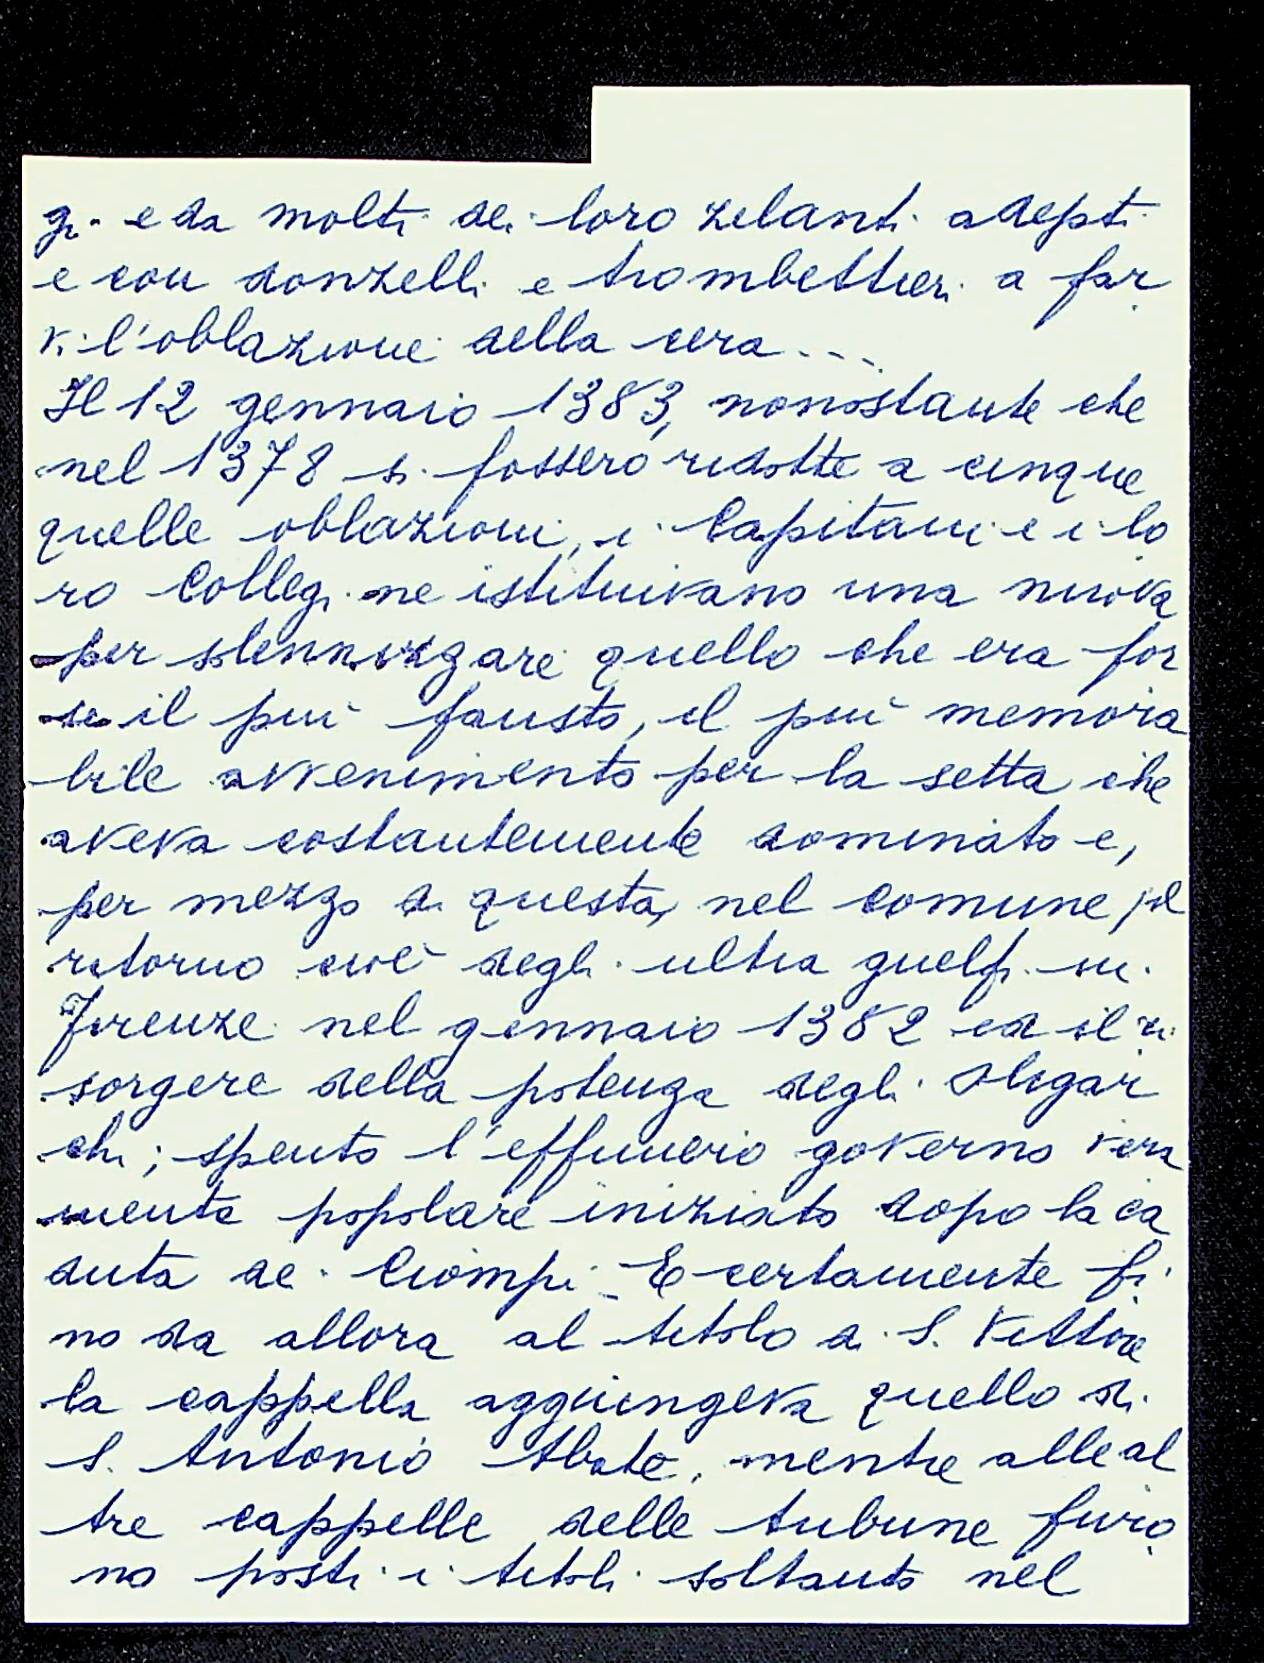 gi e da molti dei loro zelanti adepti
e con donzelli e trombettieri a far
vi l'oblazione della cera...
Il 12 gennaio 1383, nonostante che
nel 1378 si fossero ridotte a cinque
quelle oblazioni, i Capitani e i lo
ro Collegi ne istituivano una nuova
per solennizzare quello che era for
se il più fausto, il più memora
bile avvenimento per la setta che
aveva costantemente dominato e,
per mezzo di questa, nel comune, il
ritorno cioè degli ultra guelfi in
Firenze nel gennaio 1382 ed il ri
sorgere della potenza degli Oligar
chi; spento l'effimero governo vera
mente popolare iniziato dopo la ca
duta dei Ciompi. E certamente fi
no da allora al titolo di S. Vittore
la cappella aggiungeva quello di
S. Antonio Abate, mentre alle al
tre cappelle delle tribune furo
no posti i titoli soltanto nel